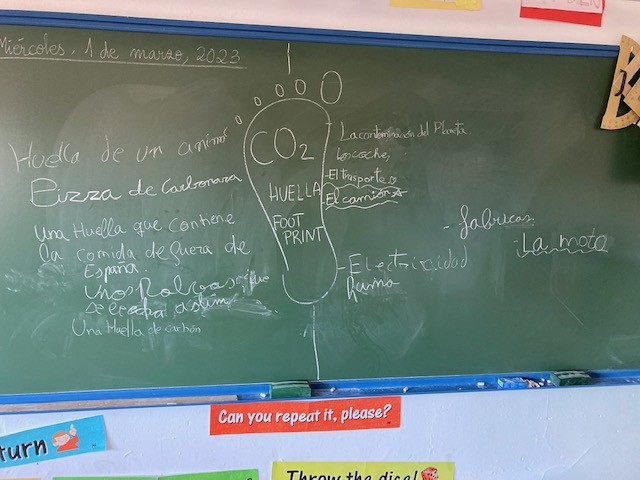 Miércoles, 1 de marzo, 2023
Huella de un animó
Pizza de Carbonara
una Huella que contiene
la comida de fuera de
España.
Unos Polvos que
se
Una Huella de carbón
CO2
HUELLA
FOOT
PRINT
La contaminación del Planeta.
Los coche,
-El trasporte
-El camión
-Electricidad
Humo
- fabricas
-La moto
turn
Can you repeat it, please?
Throw the dice!